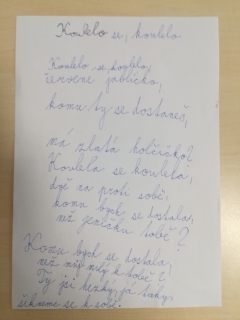 Koulelo se, koulelo
Koulelo se koulelo,
červené jablíčko,
komu ty se dostaneš,
má zlatá holčičko?
Koulela se koulela,
dvě na proti sobě.
komu bych se dostala,
než Jeníčku tobě?
Komu bych se dostala,
než můj milý k tobě?
Ty jsi hezký, já taky,
sekneme se k sobě.